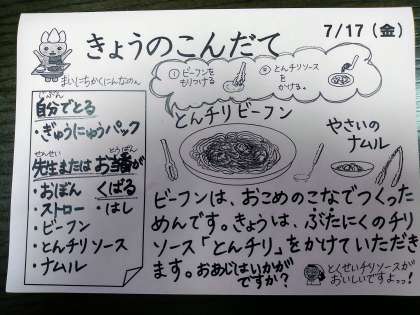 きょうのこんだて
7/17(金)
①ビーフンを
もりつける
②とんチリソース
を
かける。
じぶん
自分でとる
・ぎゅうにゅうパック
せんせい とうばん
先生または お当番が
くばる
・おぼん
・ストロー ・はし
・ビーフン
・とんチリソース
・ナムル
とんチリビーフン
やさいの
ナムル
ビーフンは、おこめのこなでつくった
めんです。きょうは、ぶたにくのチリ
ソース「とんチリ」をかけていただき
ます。おあじはいかが
ですか?
とくせいチリソースが
おいしいですよっっ!